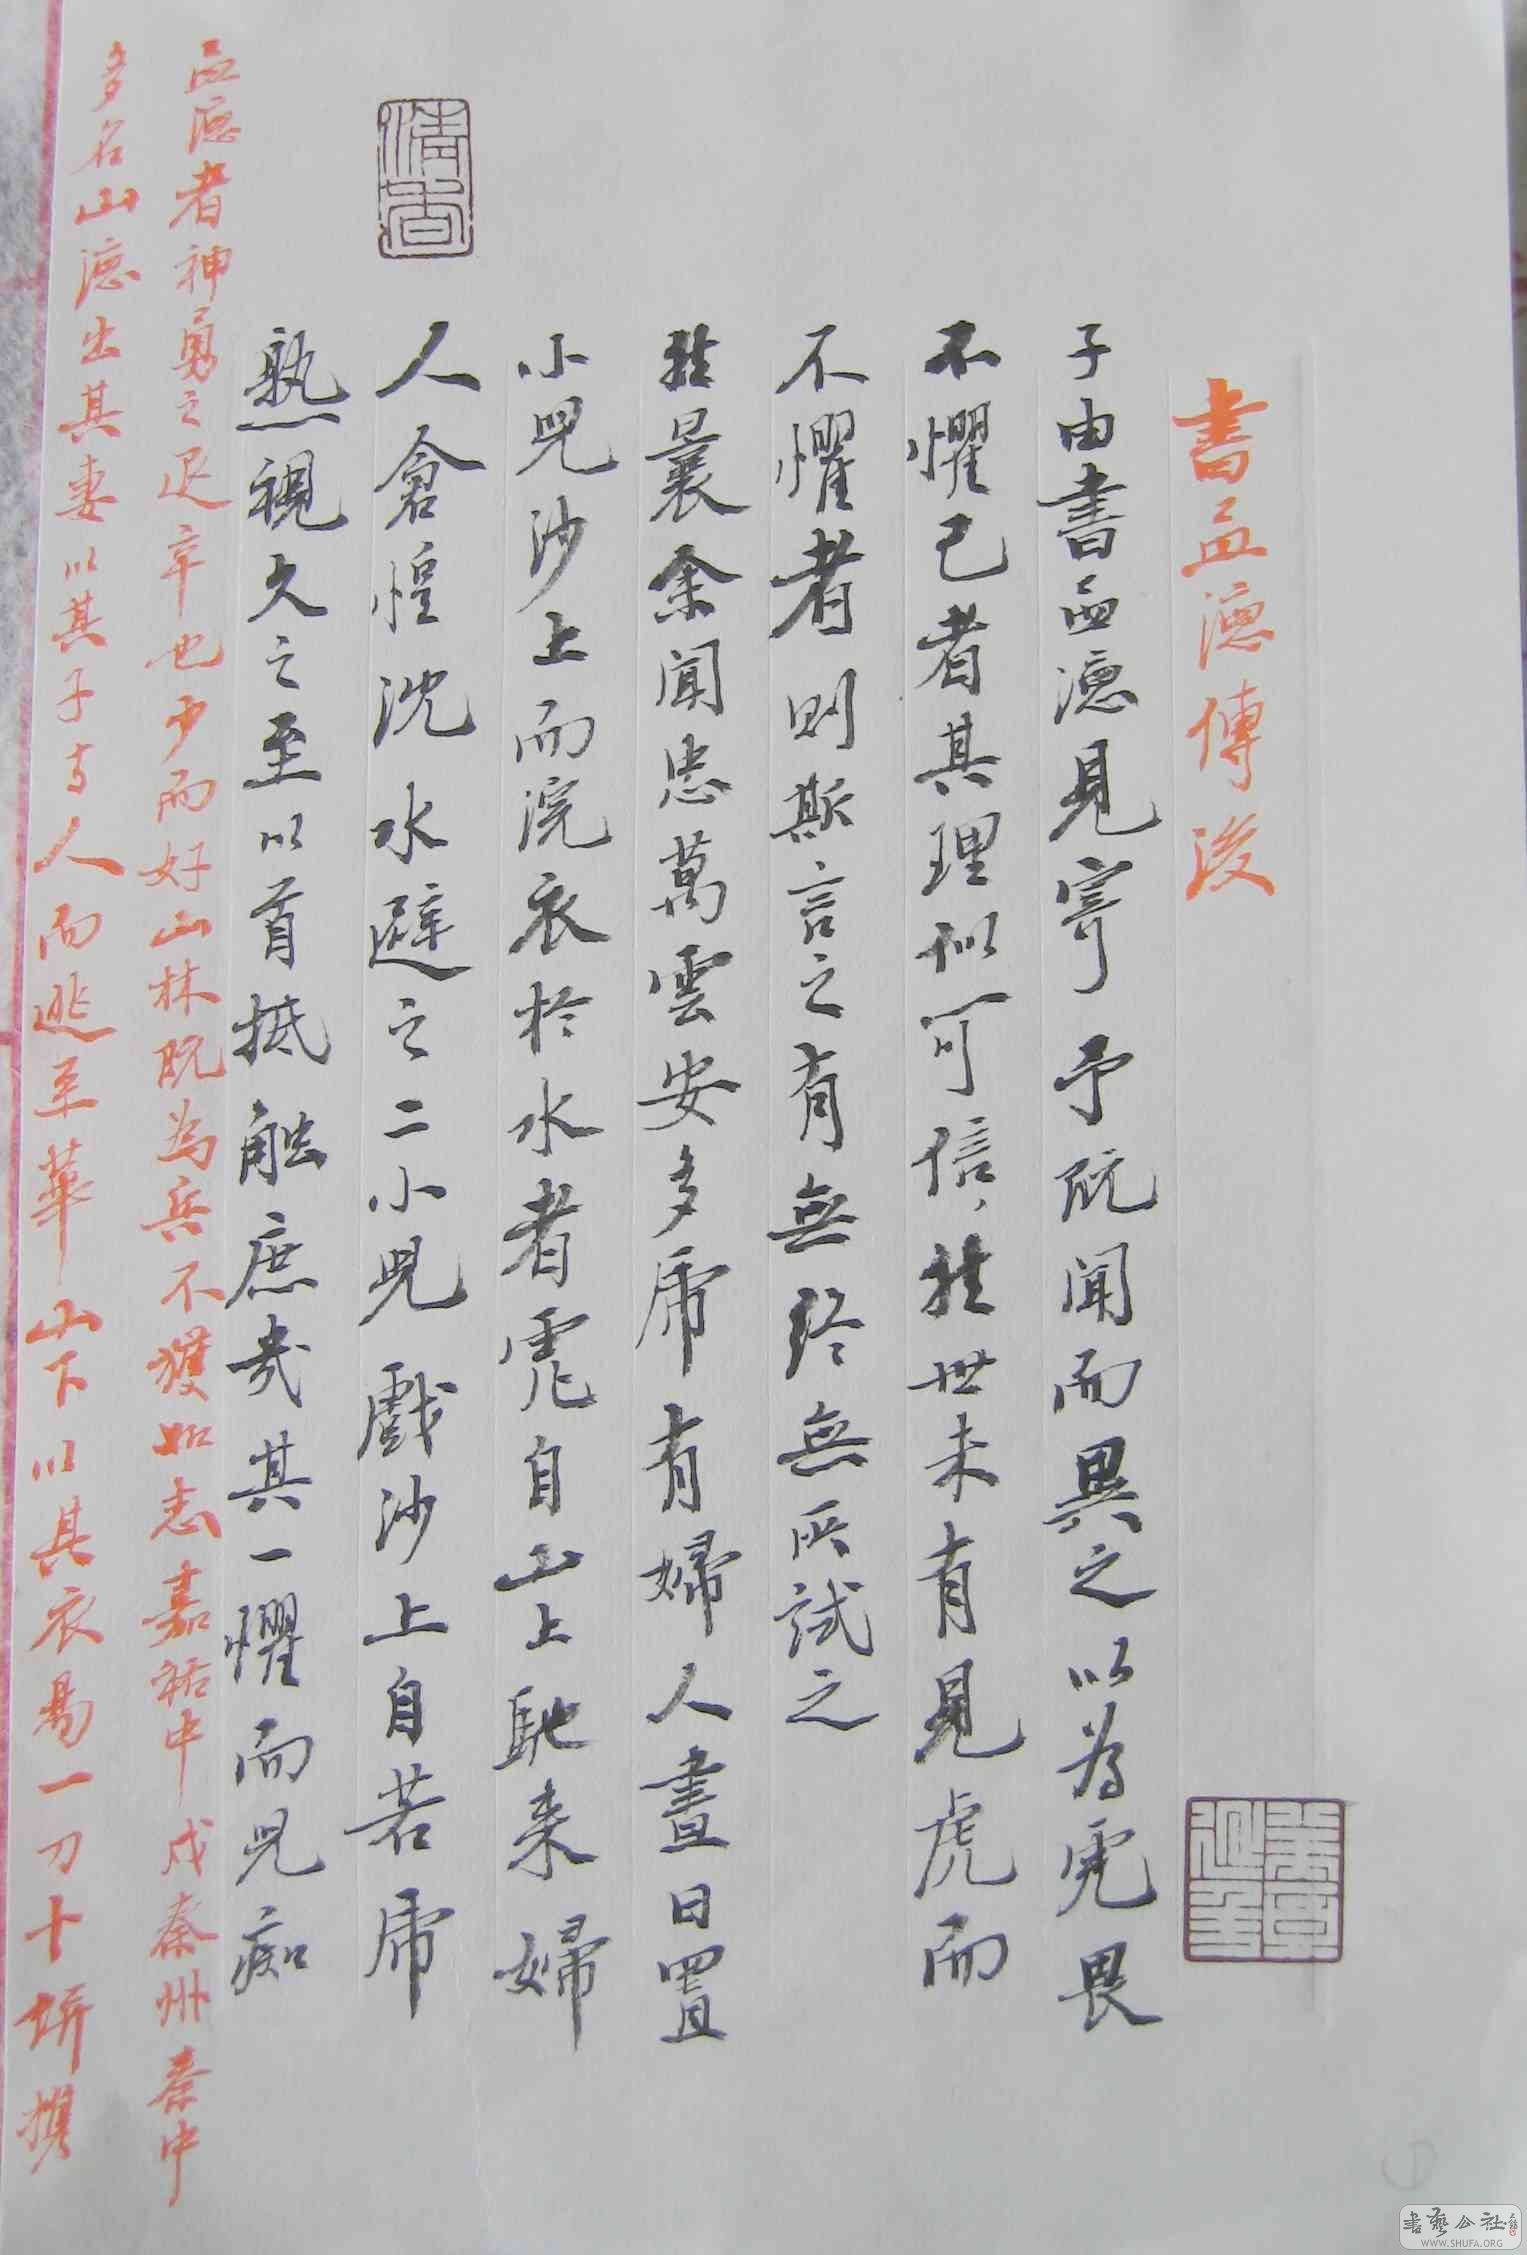 書孟德傳後
子由書孟德見寄予既聞而異之以為虎畏
不懼己者其理似可信然世未有見虎而
不懼者則斯言之有無終無所試之
然曩余聞忠萬雲安多虎有婦人晝日置
小兒沙上而浣衣於水者虎自山上馳来婦
人倉惶沈水避之二小兒戲沙上自若虎
熟視久之至以首抵触庶幾其一懼而兒痴
孟德者神勇之退卒也少而好山林既為兵不獲如志嘉祐中戍秦州秦中
多名山德出其妻以其子与人而逃至華山下以其衣易一刀十餅携
清香
書藝公社
WWW.SHUFA.ORG